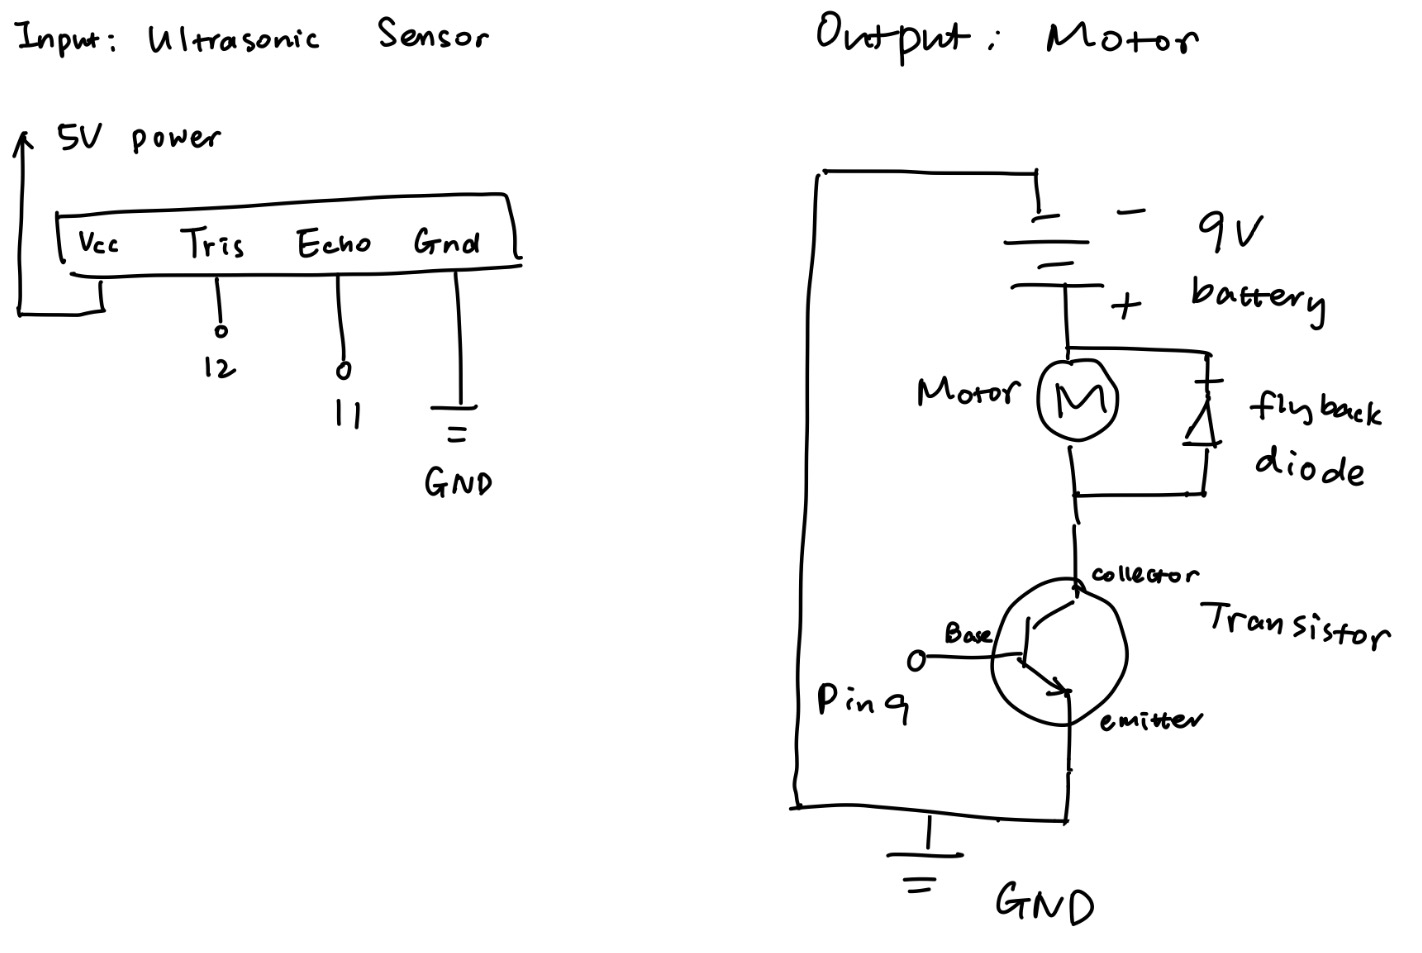 Input: Ultrasonic Sensor
5V power
Vcc Tris Echo Gnd
12
11
GND
Output: Motor
-
9V
battery
+
Motor
M
flyback
diode
collector
Base
Transistor
Pin 9
emitter
GND